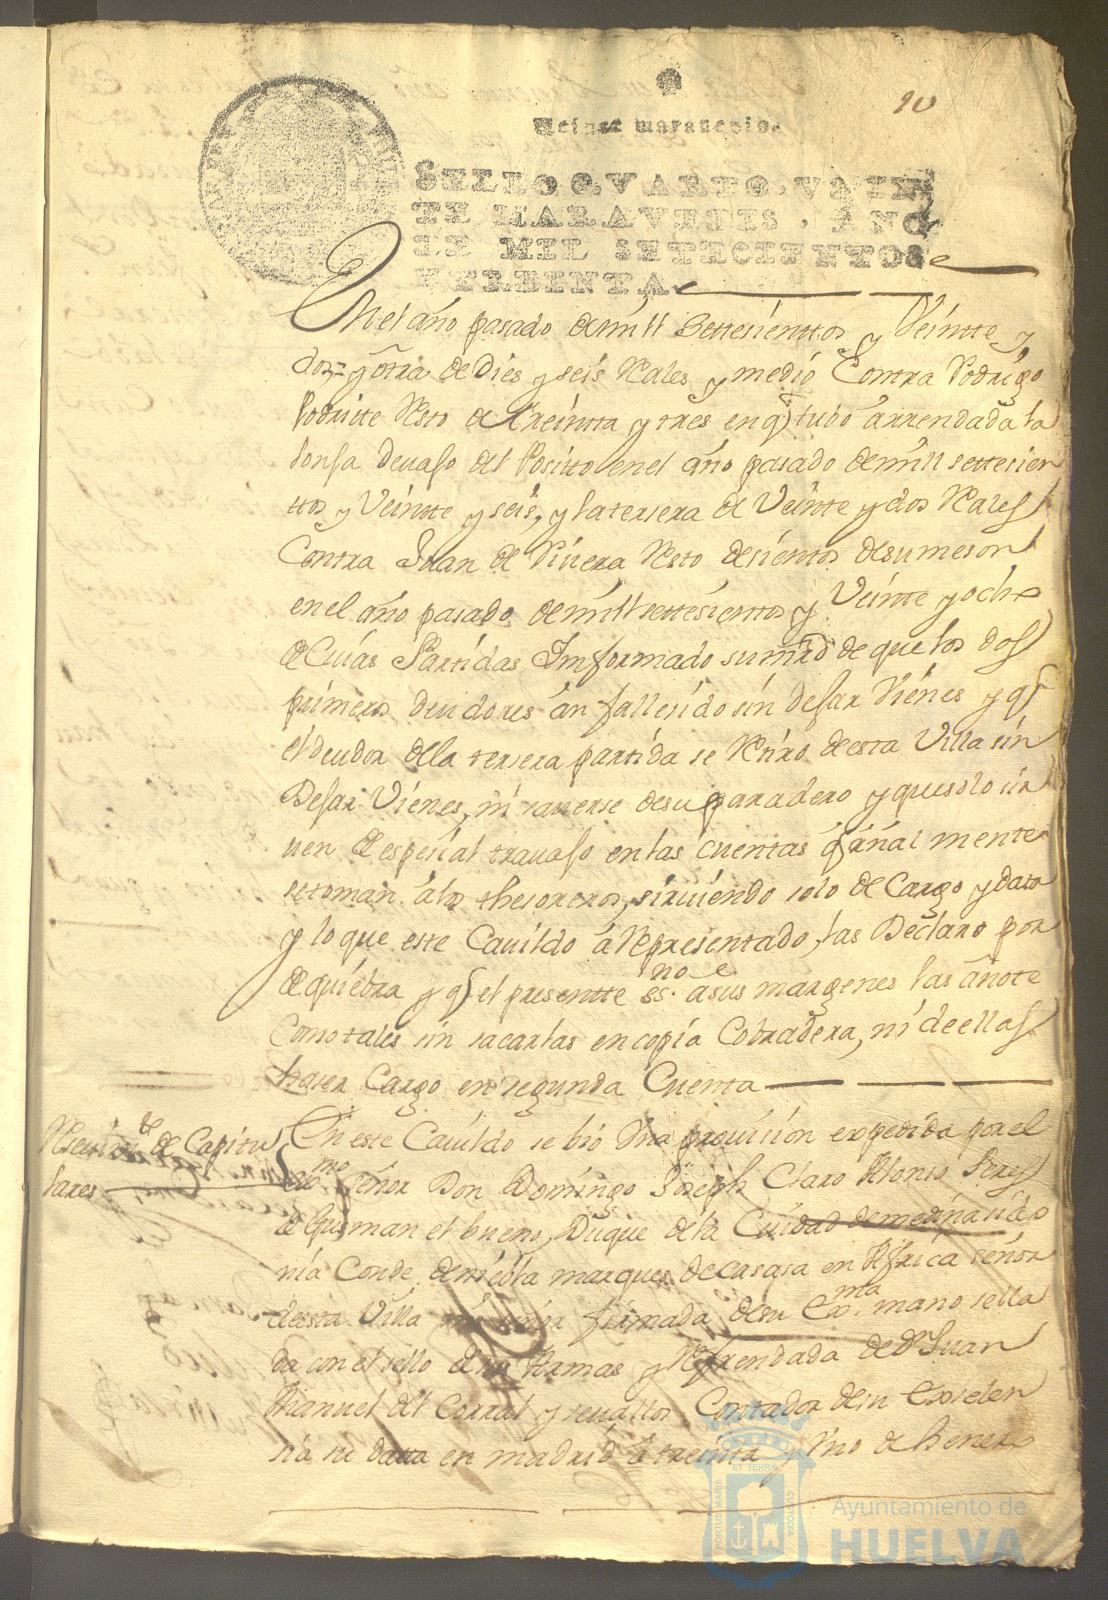 20
Veinte marauedis.
SELLO QVARTO, VEIN
TE MARAVEDIS, AÑO
DE MIL SETECIENTOS
Y TREINTA
En el año pasado de mill settesienttos y Veintte y
dos = y otra de Dies y seis Rales y medio Contra Rodrigo
resto de treintta y tres en q tubo arrendada la
lonja devajo del Positto en el año pasado de mill settesien
ttos y Veintte y seis, y la tersera de Veinte y dos Rales
Contra Juan de Rivera Resto de sientos de su meson
en el año pasado de mill settesienttos y Veinte y ocho
de Cuias Partidas Imformado su mrd de que los dos
primeros deudores an fallesido sin dejar Vienes y q
el deudor de lla tersera partida se Retiro de esta Villa sin
Dejar Vienes, ni saverse de su paradero y que solo sir
uen de espesial travajo en las cuentas q añal mente
se toman a los thesoreros, sirviendo solo de Cargo y data
y lo que este Cavildo a Representado, las Declaro por
de quiebra y q el presentte esno. a sus margenes las anote
Como tales sin sacarlas en copia Cobradera, ni de ellas
haser Cargo en segunda Cuenta
de Capitu
lares
En este Cavildo se bio Vna provision expedida por el
Exmo Señor Don Domingo Joseph Claro Alonso Peres
de Gusman el bueno, Duque de la Ciudad de medina sido
nia Conde de niebla marques de casasa en Africa señor
de esta Villa mi señor firmada de su Exma. mano sella
da con el sello de sus Armas y Refrendada de Dn Juan
Manuel del Corral y sevallos Contador de su Exselen
sia su datta en madrid a treinta y Vno de henero
PORTUS MARIS ET TERRAE CUSTODIA
Ayuntamiento de
HUELVA